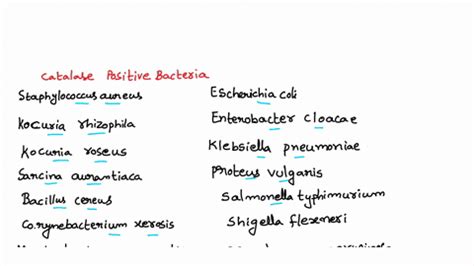 Catalase Positive Bacteria
Staphylococcus aureus
Kocuria rhizophila
Kocuria roseus
Sarcina aurantiaca
Bacillus cereus
Corynebacterium xerosis
Escherichia coli
Enterobacter cloacae
Klebsiella pneumoniae
Proteus vulgaris
Salmonella typhimurium
Shigella flexneri